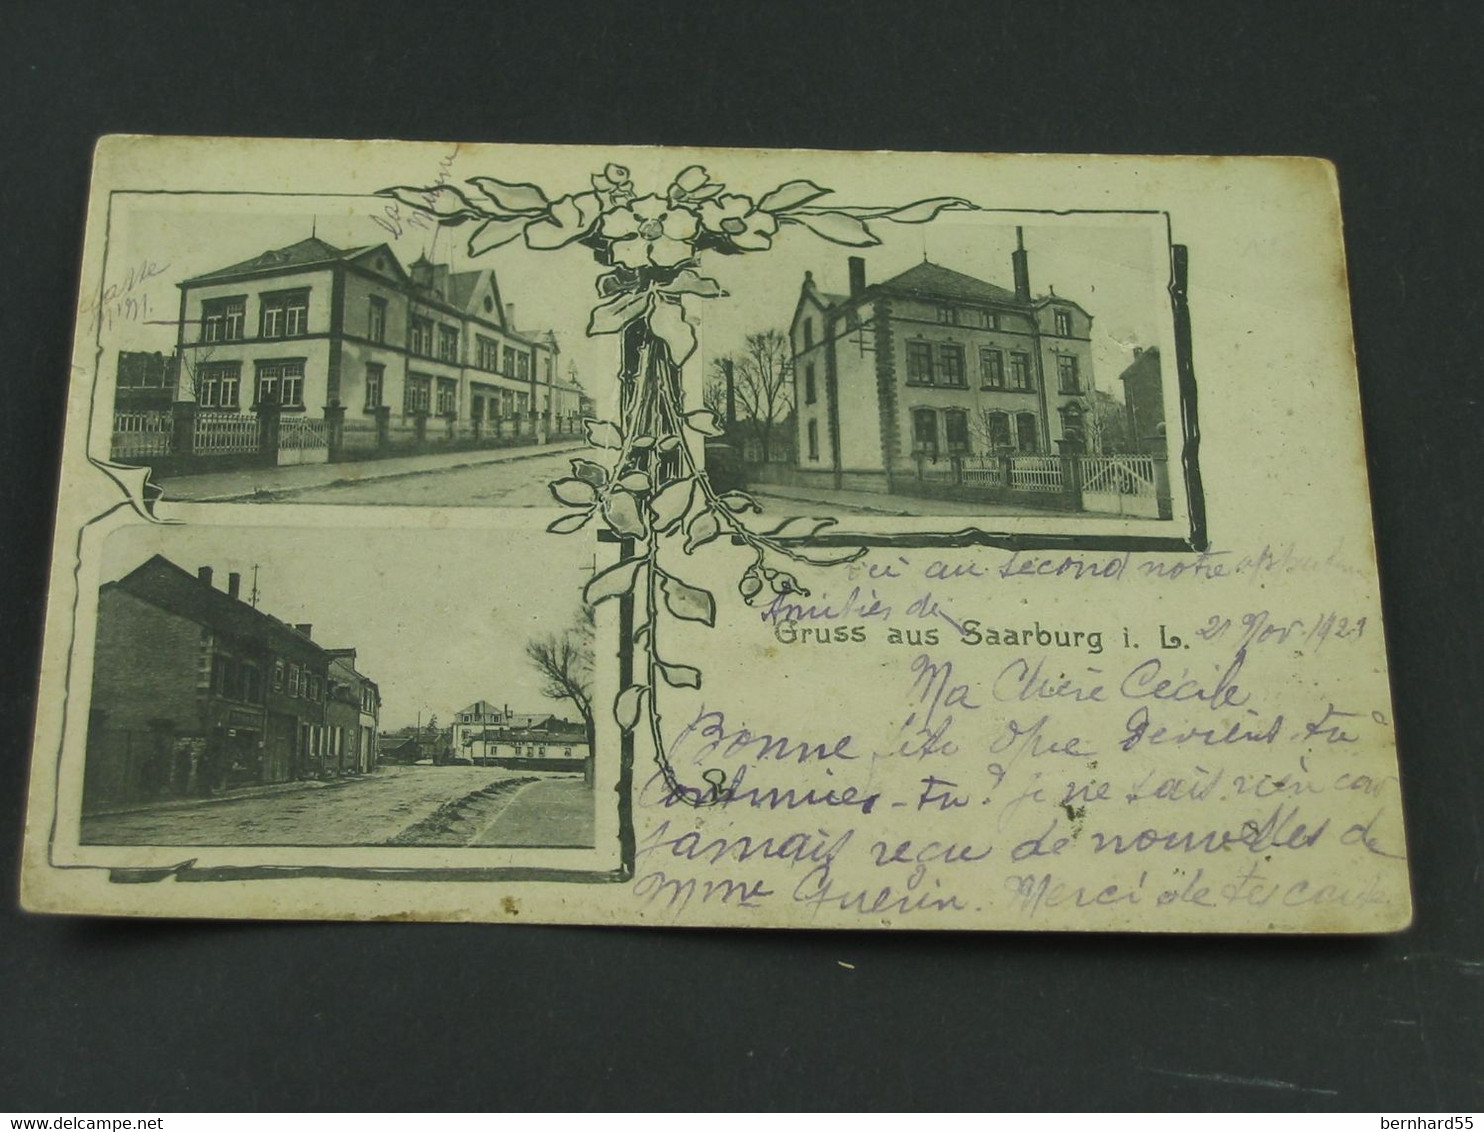 la
classe
ici au second notre
Amitiés de
Gruss aus Saarburg i. L.
21 Nov. 1923
Ma Chère Cécile
Bonne fête Que Deviens-tu
Continues-tu? je ne sais rien car
Jamais reçu de nouvelles de
Mme Guérin. Merci de tes
delcampe.net
bernhard55